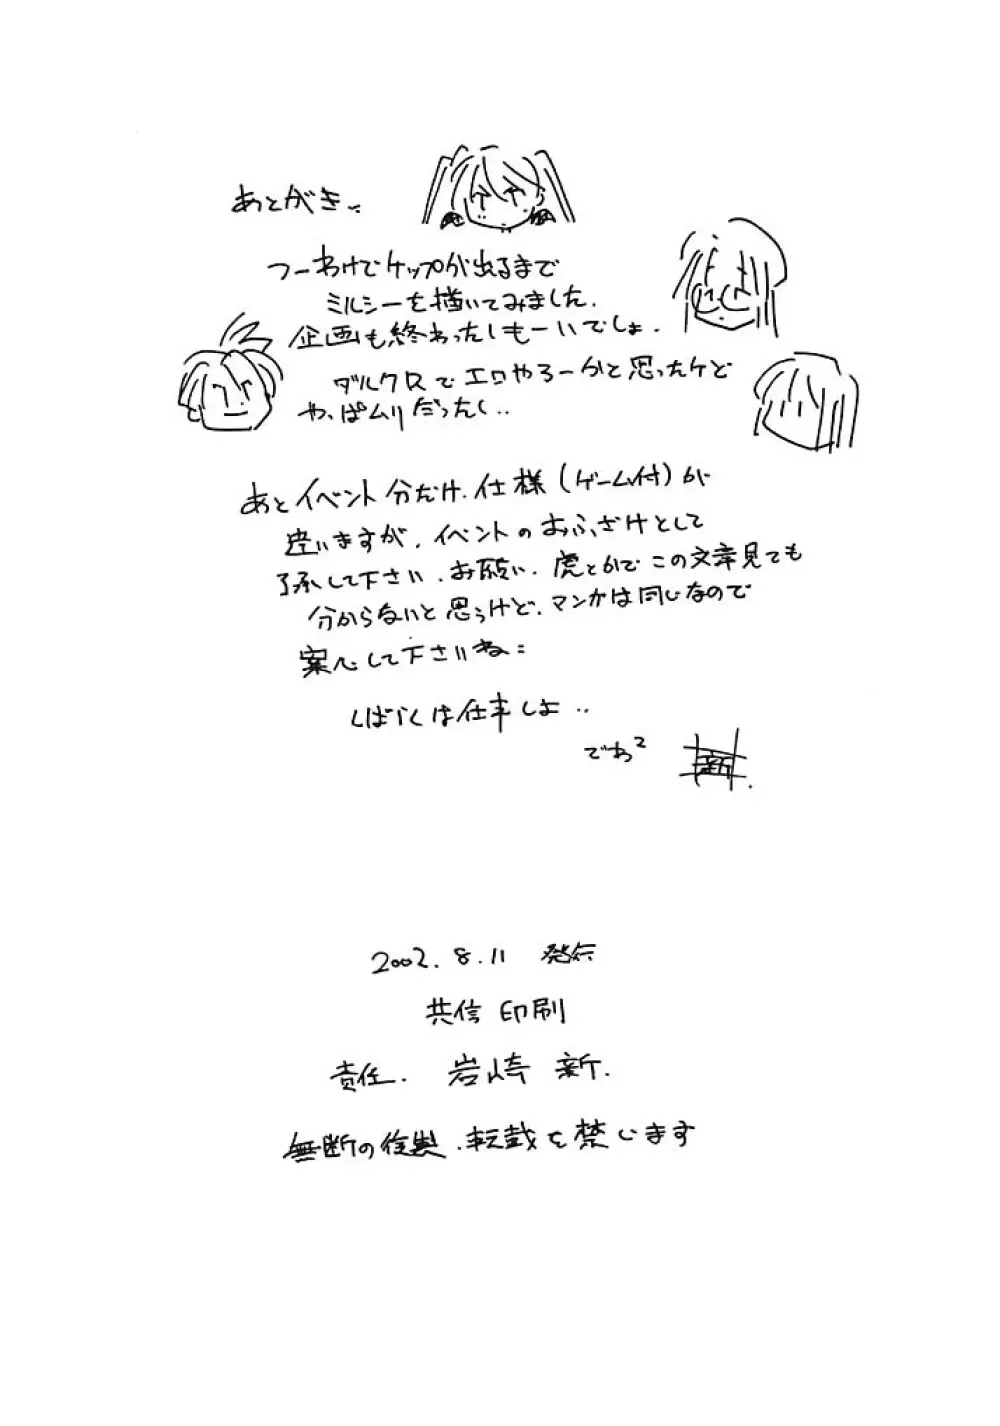 あとがき..
つーわけでケップが出るまで
ミルシーを描いてみました.
企画も終わったしもーいいでしょ.
ダルクロでエロやろーかと思ったケど
やっぱムリだったし..
あとイベント分だけ.仕様(ゲーム付)が
違いますが.イベントのおふざけとして
了承して下さい.お願い.虎とかでこの文章見ても
分からないと思うけど.マンガは同じなので
案心して下さいね
しばらくは仕事しよ..
でわ2
新
2002.8.11 発行
共信印刷
責任. 岩崎 新.
無断の複製.転載を禁じます